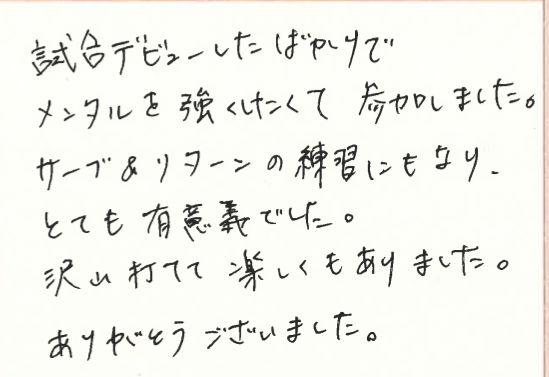 試合デビューしたばかりで
メンタルを強くしたくて参加しました。
サーブ&リターンの練習にもなり、
とても有意義でした。
沢山打てて楽しくもありました。
ありがとうございました。